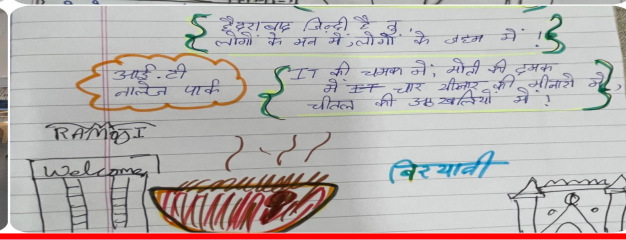 हैदराबाद जिन्दी है तू,
लोगों के मन में, लोगों के जहम में !
आई.टी
नालेज पार्क
IT की चमक में, मोती की दमक
में चार मीनार की मीनारो में,
चीतल की अठखलियो में !
RAMOJI
Welcome
बिरयानी